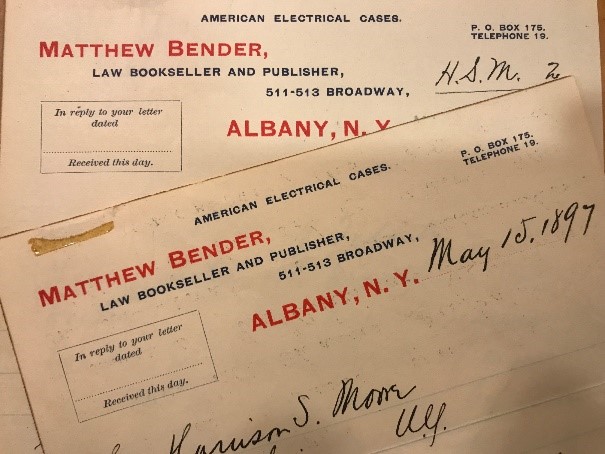 AMERICAN ELECTRICAL CASES.
P. O. BOX 175.
TELEPHONE 19.
MATTHEW BENDER,
LAW BOOKSELLER AND PUBLISHER,
511-513 BROADWAY,
H.S.M. 2
ALBANY, N. Y
In reply to your letter
dated
Received this day.
AMERICAN ELECTRICAL CASES.
P. O. BOX 175.
TELEPHONE 19.
MATTHEW BENDER,
LAW BOOKSELLER AND PUBLISHER,
511-513 BROADWAY,
ALBANY, N. Y.
May 15, 1897
In reply to your letter
dated
Received this day.
Harrison S. Moore